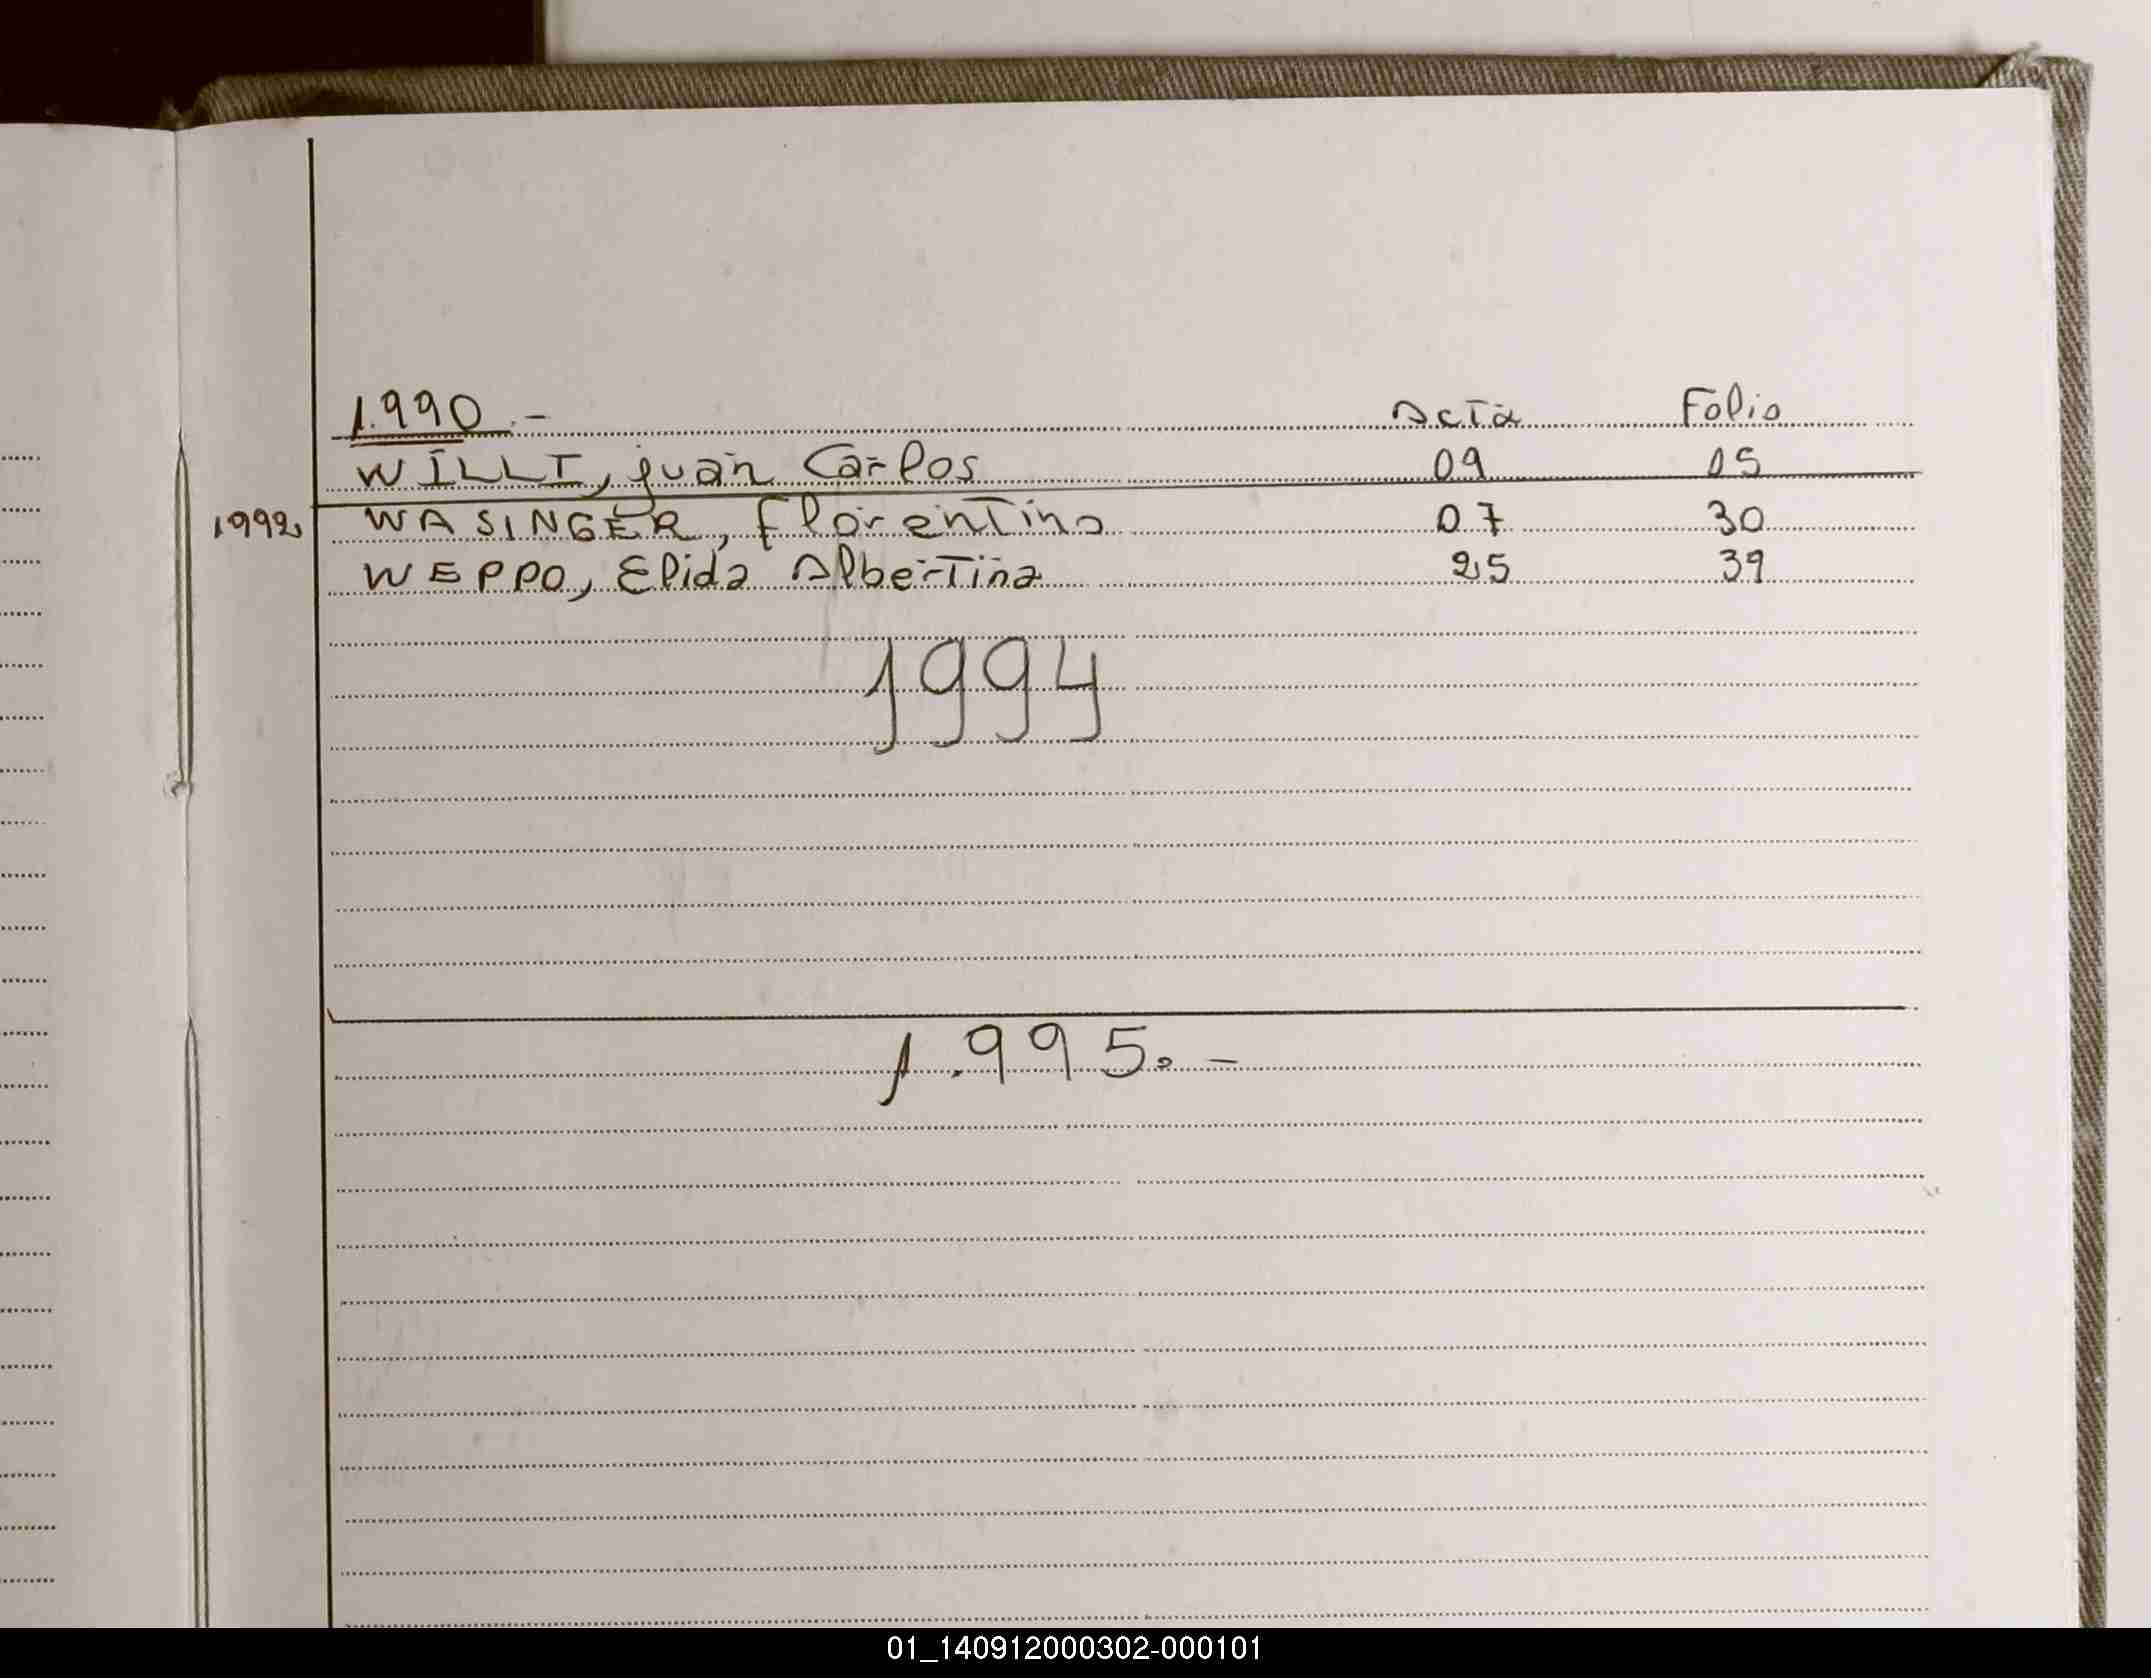 1.990.- Acta Folio
WILLI, Juan Carlos 09 05
1992 WASINGER, Florentino 07 30
WEPPO, Elida Albertina 25 39
1994
1.995.-
01_140912000302-000101